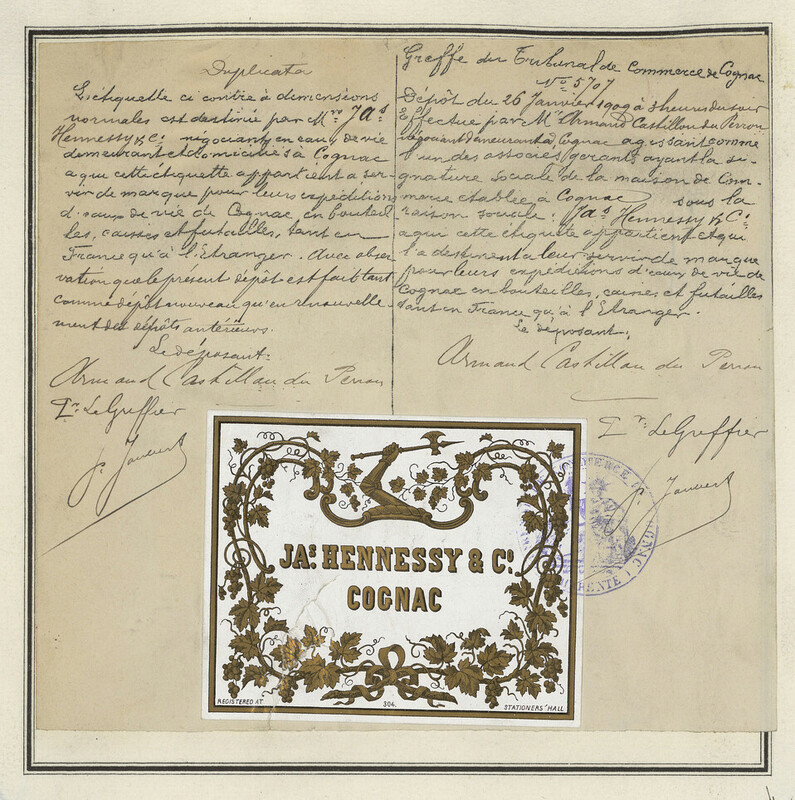 Duplicata
L'étiquette ci contre à dimensions
normales est destinée par Mrs JAs
Hennessy & Co négociants en eaux de vie
demeurant et domiciliés à Cognac
a qui cette étiquette appartient a ser-
vir de marque pour leurs expéditions
d'eaux de vie de Cognac en bouteil-
les, caisses et futailles, tant en
France qu'à l'Etranger. Avec obser-
vation que le présent dépôt est fait tant
comme dépôt nouveau qu'en renouvelle-
ment des dépôts antérieurs.
Le déposant:
Armand Castillon du Perron
Pr. Le Greffier
Greffe du Tribunal de Commerce de Cognac
No 5707
Dépôt du 26 Janvier 1909 à 3 heures du soir
Effectué par Mr Armand Castillon du Perron
négociant demeurant à Cognac agissant comme
l'un des associés gérants ayant la si-
gnature sociale de la maison de Com-
merce établie à Cognac sous la
raison sociale: JAs Hennessy & Co
a qui cette étiquette appartient et qui
l'a destinent a leur servir de marque
pour leurs expéditions d'eaux de vie de
Cognac en bouteilles, caisses et futailles
tant en France qu'à l'Etranger.
Le déposant,
Armand Castillon du Perron
Pr. Le Greffier
JAs HENNESSY & Co.
COGNAC
REGISTERED AT
304.
STATIONERS' HALL